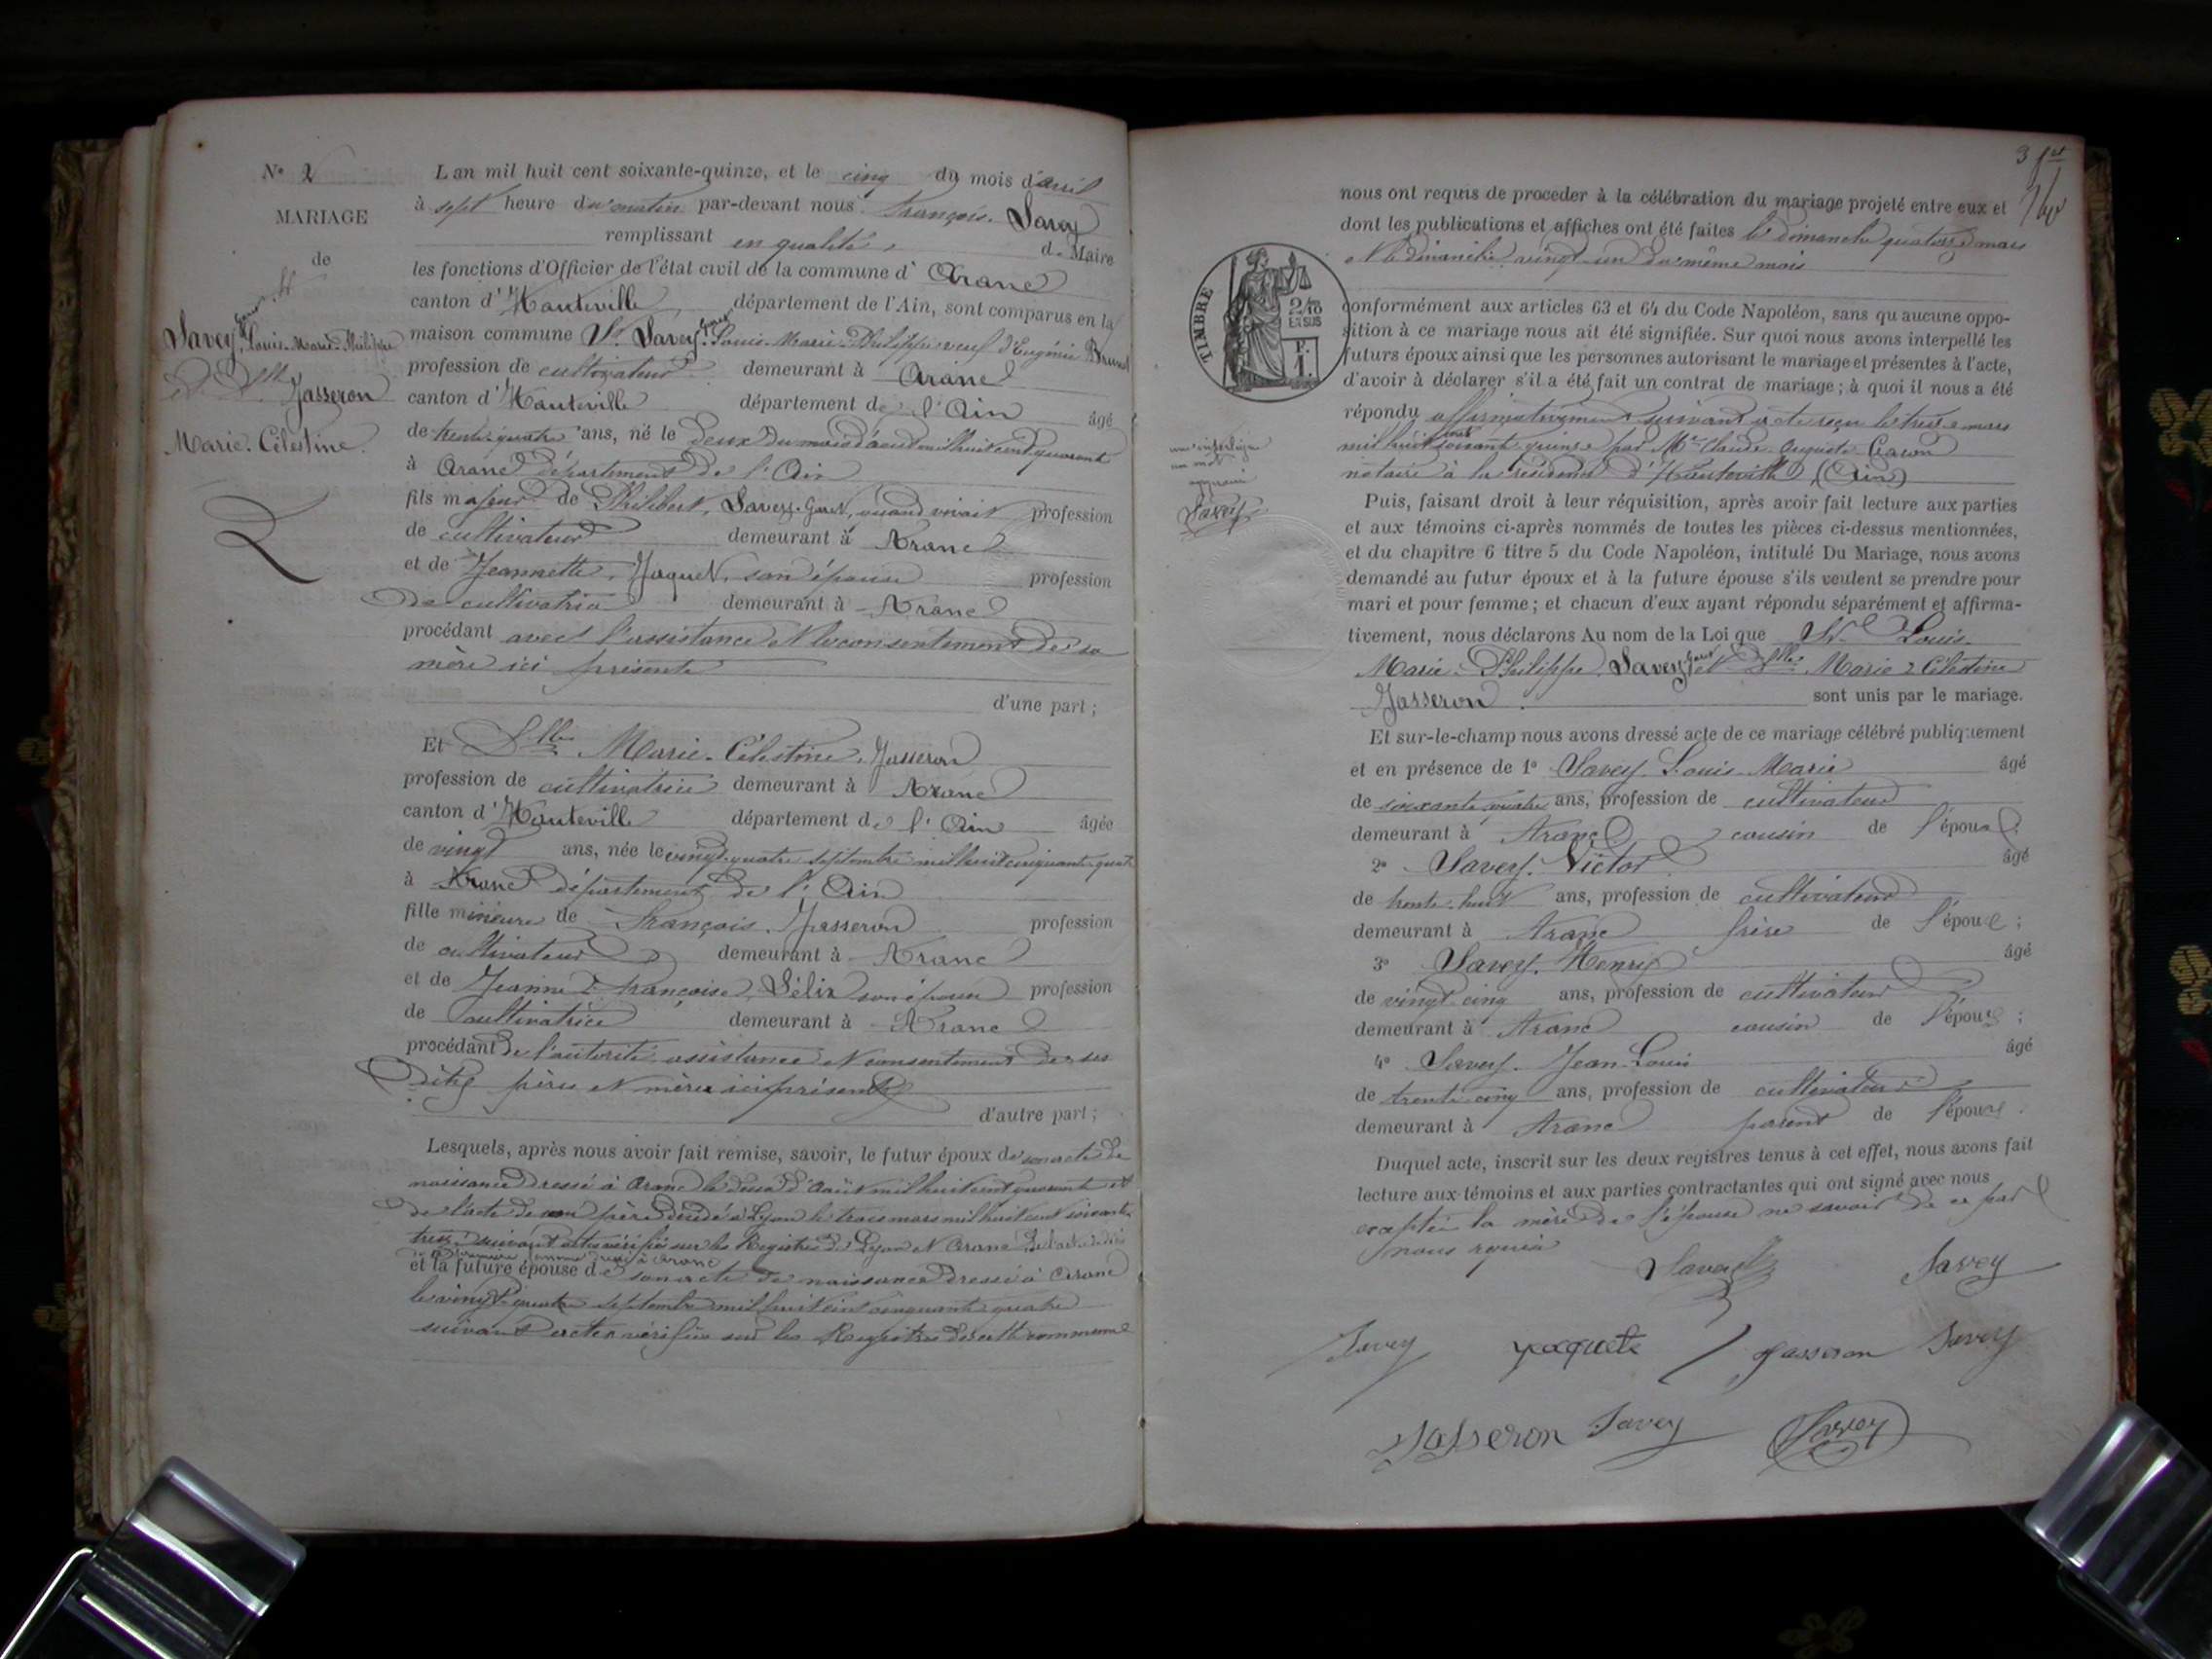 N° 2
MARIAGE
de
Savey Louis-Marie-Philippe
Jasseron
Marie-Célestine.
L'an mil huit cent soixante-quinze, et le cinq du mois d'avril
à sept heure du matin par-devant nous François Savey
remplissant en qualité de Maire
les fonctions d'Officier de l'état civil de la commune d'Aranc
canton d'Hauteville département de l'Ain, sont comparus en la
maison commune Sr. Savey Louis-Marie-Philippe veuf d'Eugénie Brunet
profession de cultivateur demeurant à Aranc
canton d'Hauteville département de l'Ain âgé
de trente-quatre ans, né le deux du mois d'août mil huit cent quarante
à Aranc département de l'Ain
fils majeur de Philibert, Savey, quand vivait profession
de cultivateur demeurant à Aranc
et de Jeannette, Jaquet, son épouse profession
de cultivatrice demeurant à Aranc
procédant avec l'assistance et le consentement de sa
mère ici présente
d'une part ;
Et Dlle Marie-Célestine, Jasseron
profession de cultivatrice demeurant à Aranc
canton d'Hauteville département de l'Ain âgée
de vingt ans, née le vingt-quatre septembre mil huit cinquante-quatre
à Aranc département de l'Ain
fille mineure de François, Jasseron profession
de cultivateur demeurant à Aranc
et de Jeanne Françoise, Bélix son épouse profession
de cultivatrice demeurant à Aranc
procédant de l'autorité assistance et consentement de ses
dits père et mère ici présents
d'autre part ;
Lesquels, après nous avoir fait remise, savoir, le futur époux de son acte de
naissance dressé à Aranc le deux d'août mil huit cent quarante et
de l'acte de son père décédé à Lyon le trois mars mil huit cent soixante
treize suivant actes vérifiés sur les Registres de Lyon et Aranc, de l'acte de décès
de sa première femme à Aranc
et la future épouse de son acte de naissance dressé à Aranc
le vingt-quatre septembre mil huit cent cinquante quatre
suivant actes vérifiés sur les Registres de cette commune
3
nous ont requis de proceder à la célébration du mariage projeté entre eux et
dont les publications et affiches ont été faites le dimanche quatorze mars
et le dimanche vingt-un du même mois
TIMBRE
2/10 EN SUS
conformément aux articles 63 et 64 du Code Napoléon, sans qu'aucune oppo-
sition à ce mariage nous ait été signifiée. Sur quoi nous avons interpellé les
futurs époux ainsi que les personnes autorisant le mariage et présentes à l'acte,
d'avoir à déclarer s'il a été fait un contrat de mariage ; à quoi il nous a été
répondu affirmativement suivant acte reçu le treize mars
mil huit cent soixante quinze par Me Claude Auguste
notaire à la résidence d'Hauteville (Ain)
un mot
Savey
Puis, faisant droit à leur réquisition, après avoir fait lecture aux parties
et aux témoins ci-après nommés de toutes les pièces ci-dessus mentionnées,
et du chapitre 6 titre 5 du Code Napoléon, intitulé Du Mariage, nous avons
demandé au futur époux et à la future épouse s'ils veulent se prendre pour
mari et pour femme ; et chacun d'eux ayant répondu séparément et affirma-
tivement, nous déclarons Au nom de la Loi que Sr. Louis
Marie-Philippe Savey et Dlle Marie Célestine
Jasseron sont unis par le mariage.
Et sur-le-champ nous avons dressé acte de ce mariage célébré publiquement
et en présence de 1° Savey Louis Marie âgé
de soixante quatre ans, profession de cultivateur
demeurant à Aranc cousin de l'époux
2° Savey Victor âgé
de trente-huit ans, profession de cultivateur
demeurant à Aranc frère de l'époux ;
3° Savey Henri âgé
de vingt cinq ans, profession de cultivateur
demeurant à Aranc cousin de l'époux ;
4° Savey Jean-Louis âgé
de trente-cinq ans, profession de cultivateur
demeurant à Aranc parent de l'époux.
Duquel acte, inscrit sur les deux registres tenus à cet effet, nous avons fait
lecture aux témoins et aux parties contractantes qui ont signé avec nous
excepté la mère de l'épouse ne savoir de ce par
nous requis
Savey Savey
Savey yaquete Jasseron Savey
Jasseron Savey Savey